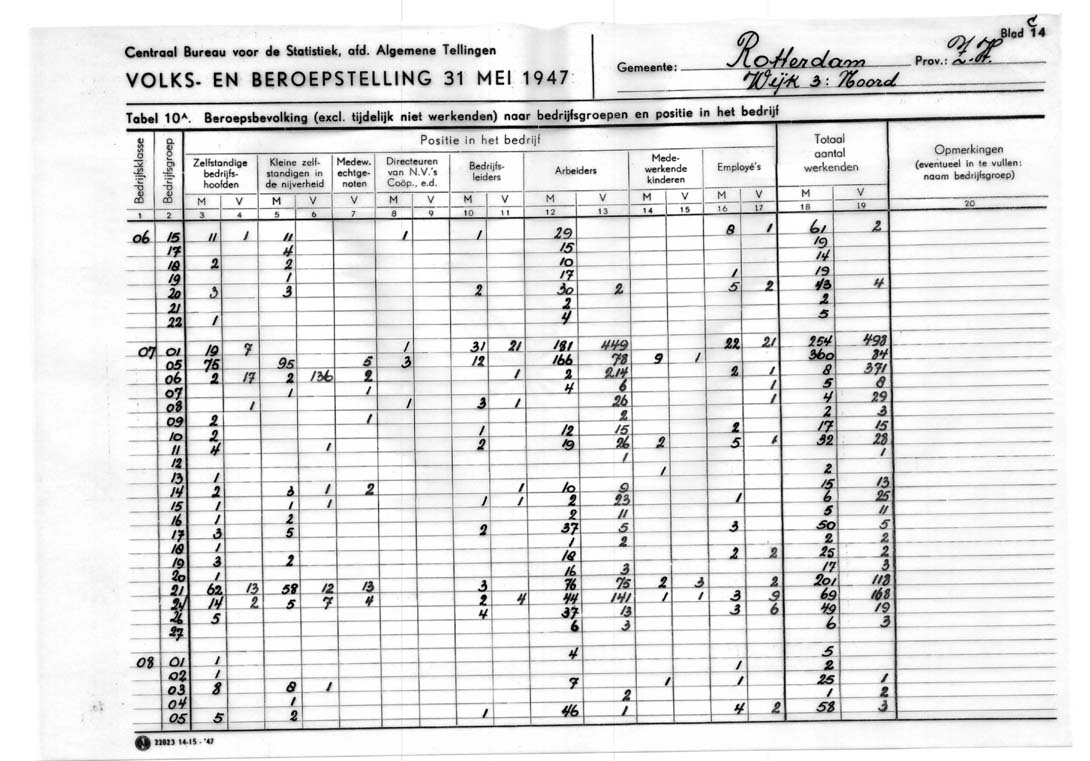 Centraal Bureau voor de Statistiek, afd. Algemene Tellingen
VOLKS- EN BEROEPSTELLING 31 MEI 1947
Gemeente: Rotterdam
Wijk 3: Noord
Prov.: Z.H.
Blad C 14
Tabel 10A. Beroepsbevolking (excl. tijdelijk niet werkenden) naar bedrijfsgroepen en positie in het bedrijf
Bedrijfsklasse
Bedrijfsgroep
Positie in het bedrijf
Zelfstandige bedrijfs-hoofden
Kleine zelf-standigen in de nijverheid
Medew. echtge-noten
Directeuren van N.V.'s Coöp., e.d.
Bedrijfs-leiders
Arbeiders
Mede-werkende kinderen
Employé's
Totaal aantal werkenden
Opmerkingen (eventueel in te vullen: naam bedrijfsgroep)
M V M V V M V M V M V M V M V M V
1 2 3 4 5 6 7 8 9 10 11 12 13 14 15 16 17 18 19 20
06 15 11 1 11 1 1 29 8 1 61 2
17 4 15 19
18 2 2 10 14
19 1 17 1 19
20 3 3 2 30 2 5 2 43 4
21 2 2
22 1 4 5
07 01 19 7 1 31 21 181 449 22 21 254 498
05 75 95 5 3 12 166 78 9 1 360 84
06 2 17 2 136 2 1 2 214 2 1 8 371
07 1 1 4 6 1 5 8
08 1 1 3 1 26 1 4 29
09 2 1 2 2 3
10 2 1 12 15 2 17 15
11 4 1 2 19 26 2 5 1 32 28
12 1 1
13 1 1 2
14 2 3 1 2 1 10 9 15 13
15 1 1 1 1 1 2 23 1 6 25
16 1 2 2 11 5 11
17 3 5 2 37 5 3 50 5
18 1 1 2 2 2
19 3 2 18 2 2 25 2
20 1 16 3 17 3
21 62 13 58 12 13 3 76 75 2 3 2 201 118
24 14 2 5 7 4 2 4 44 141 1 1 3 9 69 168
26 5 4 37 13 3 6 49 19
27 6 3 6 3
08 01 1 4 5
02 1 1 2
03 8 8 1 7 1 1 25 1
04 1 2 1 2
05 5 2 1 46 1 4 2 58 3
22823 14-15 - '47